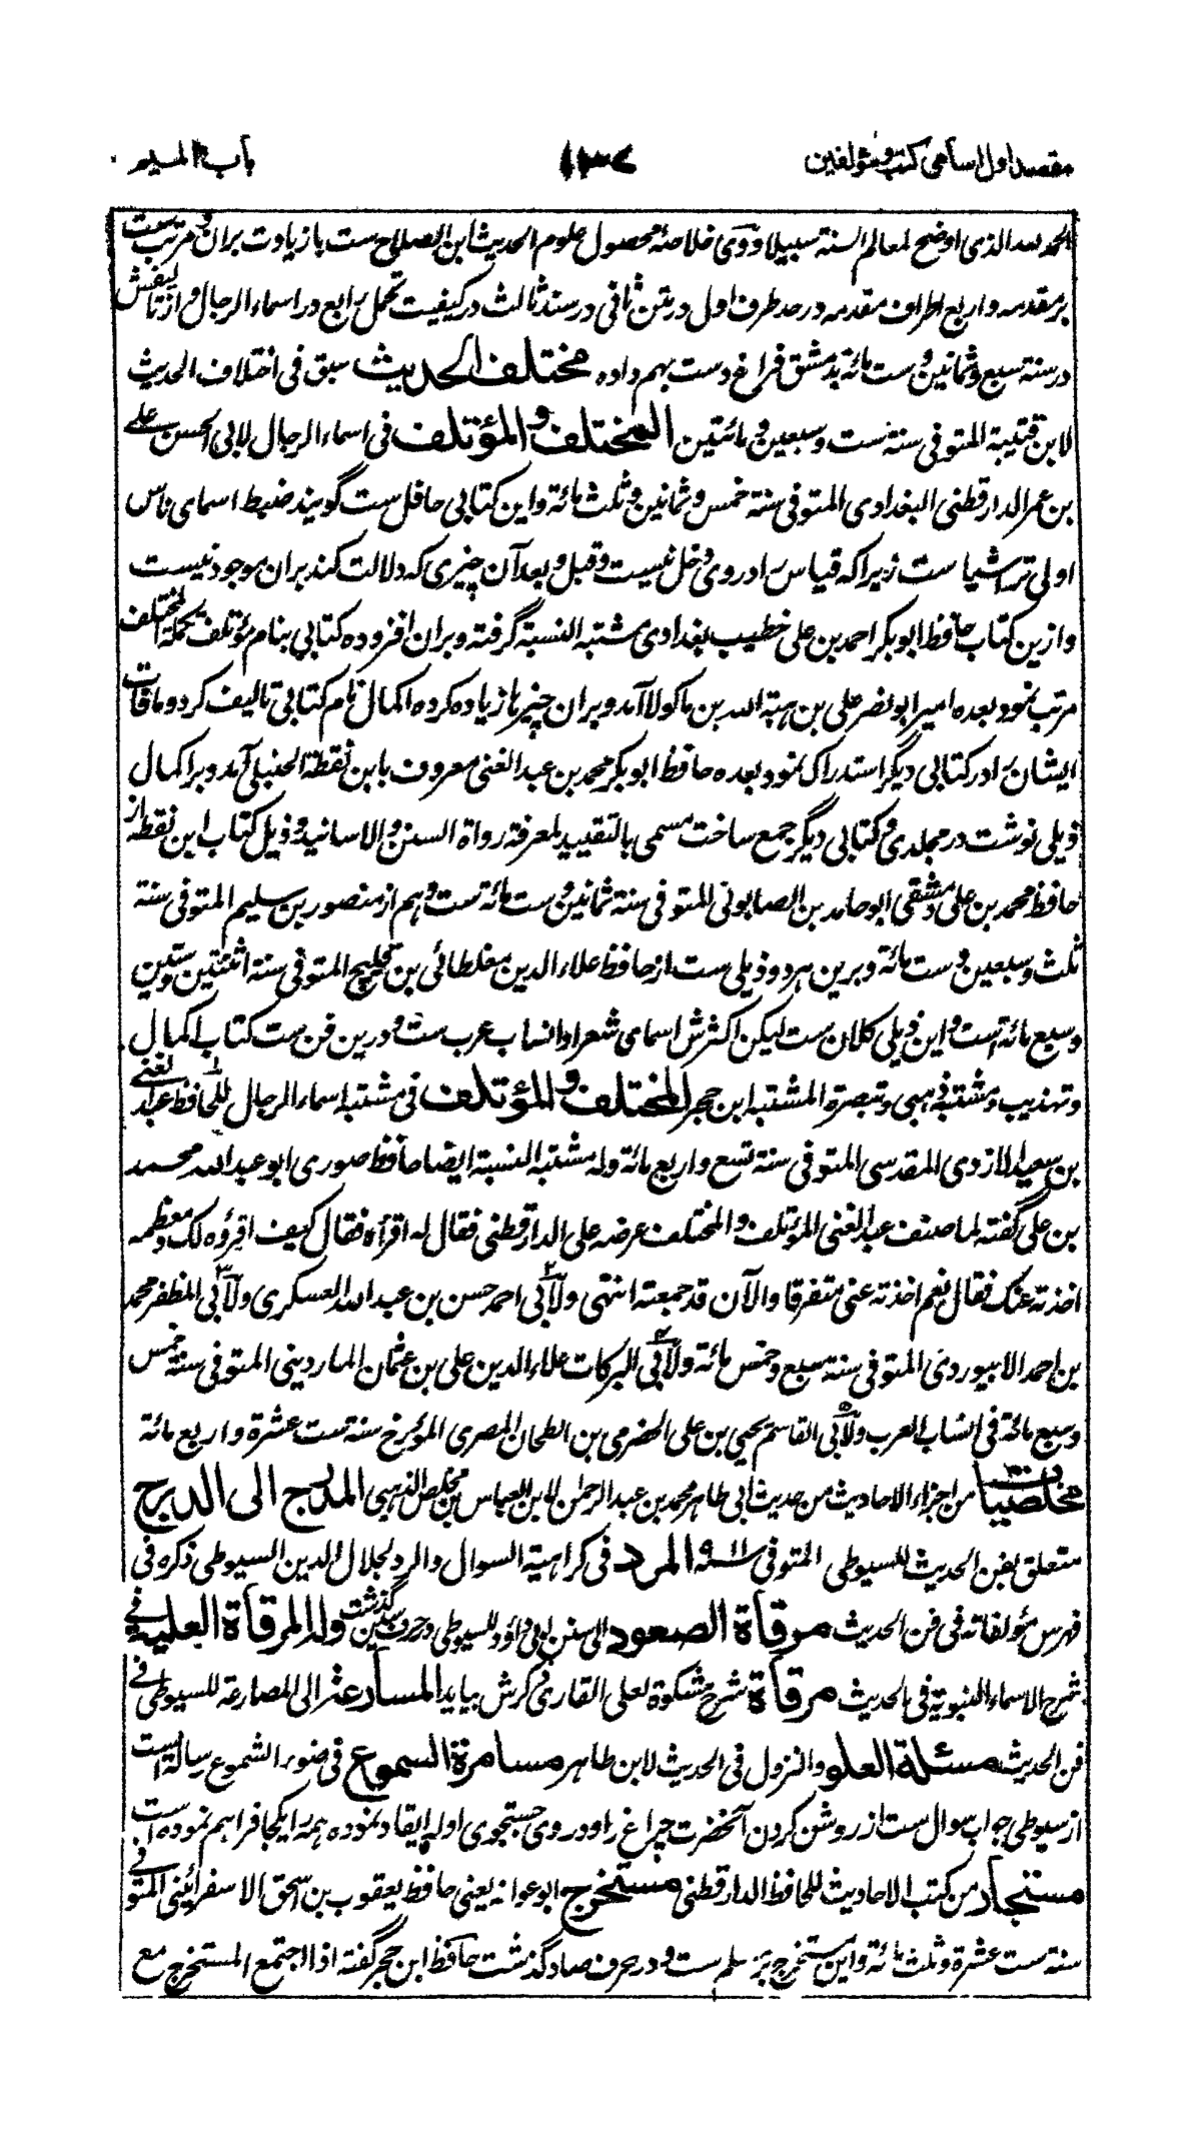 مقصد اول اسامی کتب و مؤلفین
۱۳۷
باب المیم
الحمد لله الذی اوضح لمعالم السنة سبیلا ووی خلاصۂ محصول علوم الحدیث ابن الصلاح ست با زیادت بران و مرتب ست
بر مقدمه و اربع اطراف مقدمه در حد طرف اول در متن ثانی در سند ثالث در کیفیت تحمل رابع در اسماء الرجال و از تالیفش
در سنة سبع و ثمانین و ست مائة بدمشق فراغ دست بهم داده مختلف الحدیث سبق فی اختلاف الحدیث
لابن قتیبة المتوفی سنة ست و سبعین و مائتین المختلف و المؤتلف فی اسماء الرجال لابی الحسن علی
بن عمر الدارقطنی البغدادی المتوفی سنة خمس و ثمانین و ثلث مائة و این کتابی حافل ست گویند ضبط اسمای ناس
اولی تر اشیا ست زیرا که قیاس را در وی دخل نیست و قبل و بعد آن چیزی که دلالت کند بران موجود نیست
و ازین کتاب حافظ ابو بکر احمد بن علی خطیب بغدادی مشتبه النسبة گرفته و بران افزوده کتابی بنام مؤتلف تکملة المختلف
مرتب نمود بعده امیر ابو نصر علی بن هبة الله بن ماکولا آمد و بران چیزها زیاده کرده اکمال نام کتابی تالیف کرد و مافات
ایشان را در کتابی دیگر استدراک نمود بعده حافظ ابو بکر محمد بن عبد الغنی معروف بابن نقطة الحنبلی آمد و بر اکمال
ذیلی نوشت در مجلدی و کتابی دیگر جمع ساخت مسمی بالتقیید لمعرفة رواة السنن و الاسانید و ذیل کتاب ابن نقطه از
حافظ محمد بن علی دمشقی ابو حامد بن الصابونی المتوفی سنة ثمانین و ست مائة ست و هم از منصور بن سلیم المتوفی سنة
ثلث و سبعین و ست مائة و برین هر دو ذیلی ست از حافظ علاء الدین مغلطائی بن قلیج المتوفی سنة اثنتین و ستین
و سبع مائة است و این ذیلی کلان ست لیکن اکثرش اسمای شعرا و انساب عرب ست و درین فن ست کتاب اکمال
و تهذیب و مشتبه ذهبی و تبصرة المشتبه ابن حجر المختلف و المؤتلف فی مشتبه اسماء الرجال للحافظ عبد الغنی
بن سعید الازدی المقدسی المتوفی سنة تسع و اربع مائة وله مشتبه النسبة ایضا حافظ صوری ابو عبد الله محمد
بن علی گفته لما صنف عبد الغنی المؤتلف و المختلف عرضه علی الدارقطنی فقال له اقرأه فقال کیف اقرؤه لک و معظمه
اخذته عنک فقال نعم اخذته عنی متفرقا و الآن قد جمعته انتهی ولابی احمد حسن بن عبد الله العسکری ولابی المظفر محمد
بن احمد الابیوردی المتوفی سنة سبع و خمس مائة ولابی البرکات علاء الدین علی بن عثمان الماردینی المتوفی سنة خمس
و سبع مائة فی انساب العرب ولابی القاسم یحیی بن علی الحضرمی بن الطحان المصری المؤرخ سنة ست عشرة و اربع مائة
مخلصیات من اجزاء الاحادیث من حدیث ابی طاهر محمد بن عبد الرحمن لابن العباس بن مخلص الذهبی المدرج الی المدرج
متعلق بفن الحدیث للسیوطی المتوفی سنة ۹۱۱ المرد فی کراهیة السوال والرد لجلال الدین السیوطی ذکره فی
فهرس مؤلفاته فی فن الحدیث مرقاة الصعود الی سنن ابی داؤد للسیوطی در حرف سین گذشت وله المرقاة العلیة فی
شرح الاسماء النبویة فی الحدیث مرقاة شرح مشکوة لعلی القاری ذکرش بیاید المسارعة الی المصارعة للسیوطی فی
فن الحدیث مسئلة العلو والنزول فی الحدیث لابن طاهر مسامرة السموع فی ضوء الشموع رسالة است
از سیوطی جواب سوال ست از روشن کردن آنحضرت چراغ را و در وی جستجوی اوله ایقاد نموده همه را یکجا فراهم نموده است
مستجاد من کتب الاحادیث للحافظ الدارقطنی مستخرج ابو عوانه یعنی حافظ یعقوب بن اسحق الاسفرائینی المتوفی
سنة ست عشرة و ثلث مائة و این مستخرج بر مسلم ست و در حرف صاد گذشت حافظ ابن حجر گفته اذا اجتمع المستخرج مع